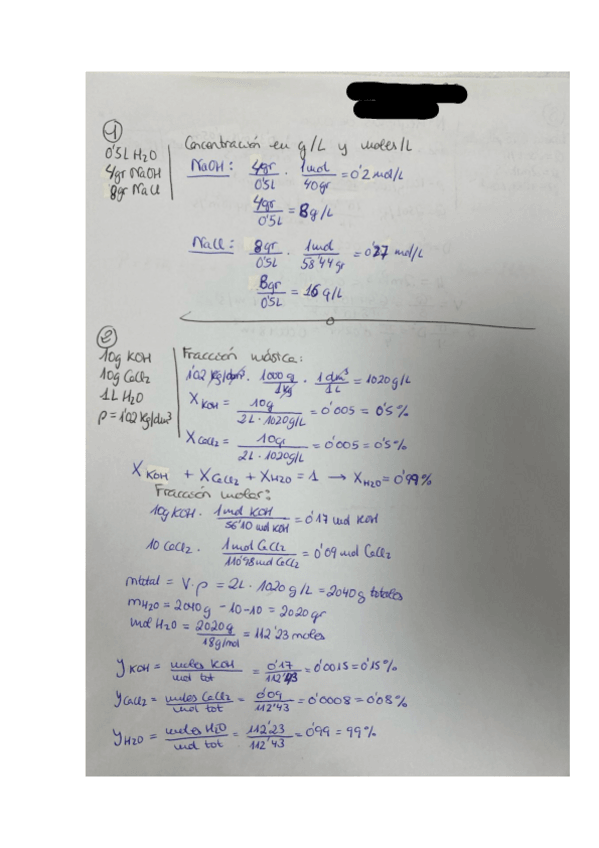 1
0'5L H2O
4gr NaOH
8gr NaCl
Concentración en g/L y moles/L
NaOH: 4gr/0'5L · 1mol/40gr = 0'2 mol/L
4gr/0'5L = 8g/L
NaCl: 8gr/0'5L · 1mol/58'44gr = 0'27 mol/L
8gr/0'5L = 16 g/L
2
10g KOH
10g CaCl2
1L H2O
ρ = 1'02 Kg/dm³
Fracción másica:
1'02 Kg/dm³ · 1000g/1Kg · 1dm³/1L = 1020g/L
X KOH = 10g/2L·1020g/L = 0'005 = 0'5%
X CaCl2 = 10gr/2L·1020g/L = 0'005 = 0'5%
X KOH + X CaCl2 + X H2O = 1 → X H2O = 0'99%
Fracción molar:
10g KOH · 1mol KOH/56'10 mol KOH = 0'17 mol KOH
10 CaCl2 · 1mol CaCl2/110'98mol CaCl2 = 0'09 mol CaCl2
mtotal = V·ρ = 2L · 1020 g/L = 2040g totales
mH2O = 2040g - 10 - 10 = 2020gr
mol H2O = 2020g/18g/mol = 112'23 moles
y KOH = moles KOH/mol tot = 0'17/112'43 = 0'0015 = 0'15%
y CaCl2 = moles CaCl2/mol tot = 0'09/112'43 = 0'0008 = 0'08%
y H2O = moles H2O/mol tot = 112'23/112'43 = 0'99 = 99%